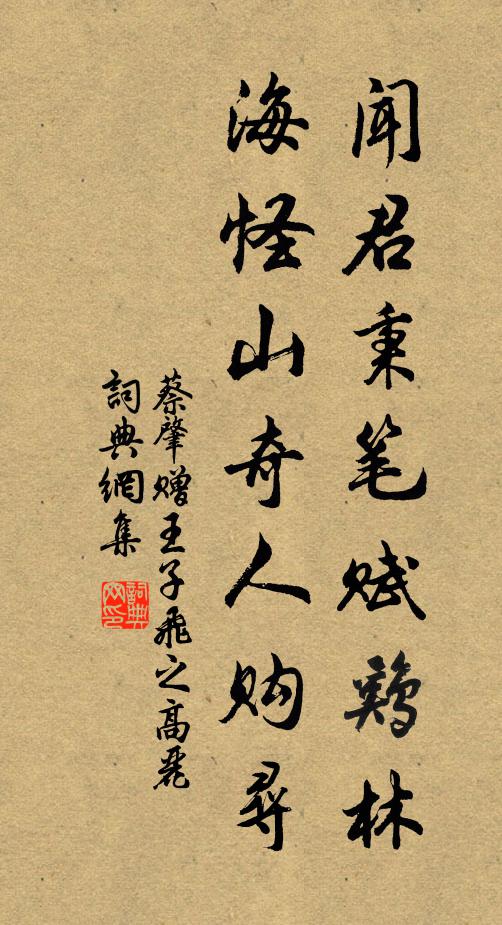 闻君秉笔赋鸡林
海怪山奇人购寻
蔡肇赠王子飞之高丽
詞典網集
詞典网印